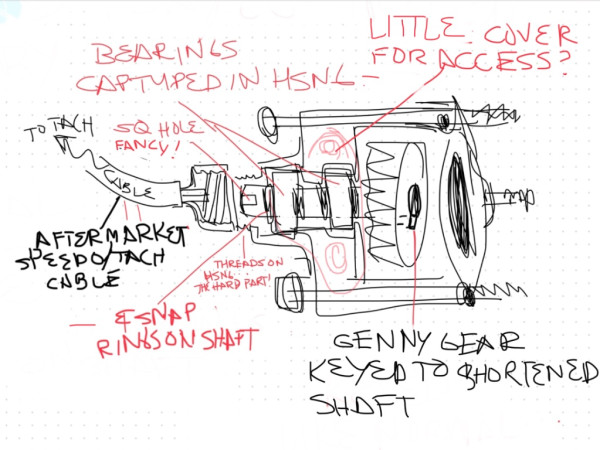 LITTLE COVER
FOR ACCESS?
BEARINGS
CAPTUPED IN HSNG -
TO TACH
SQ HOLE
FANCY!
CABLE
AFTERMARKET
SPEEDO/TACH
CABLE
THREADS ON
HSNG...
THE HARD PART!
& SNAP
RINGS ON SHAFT
GENNY GEAR
KEYED TO SHORTENED
SHAFT